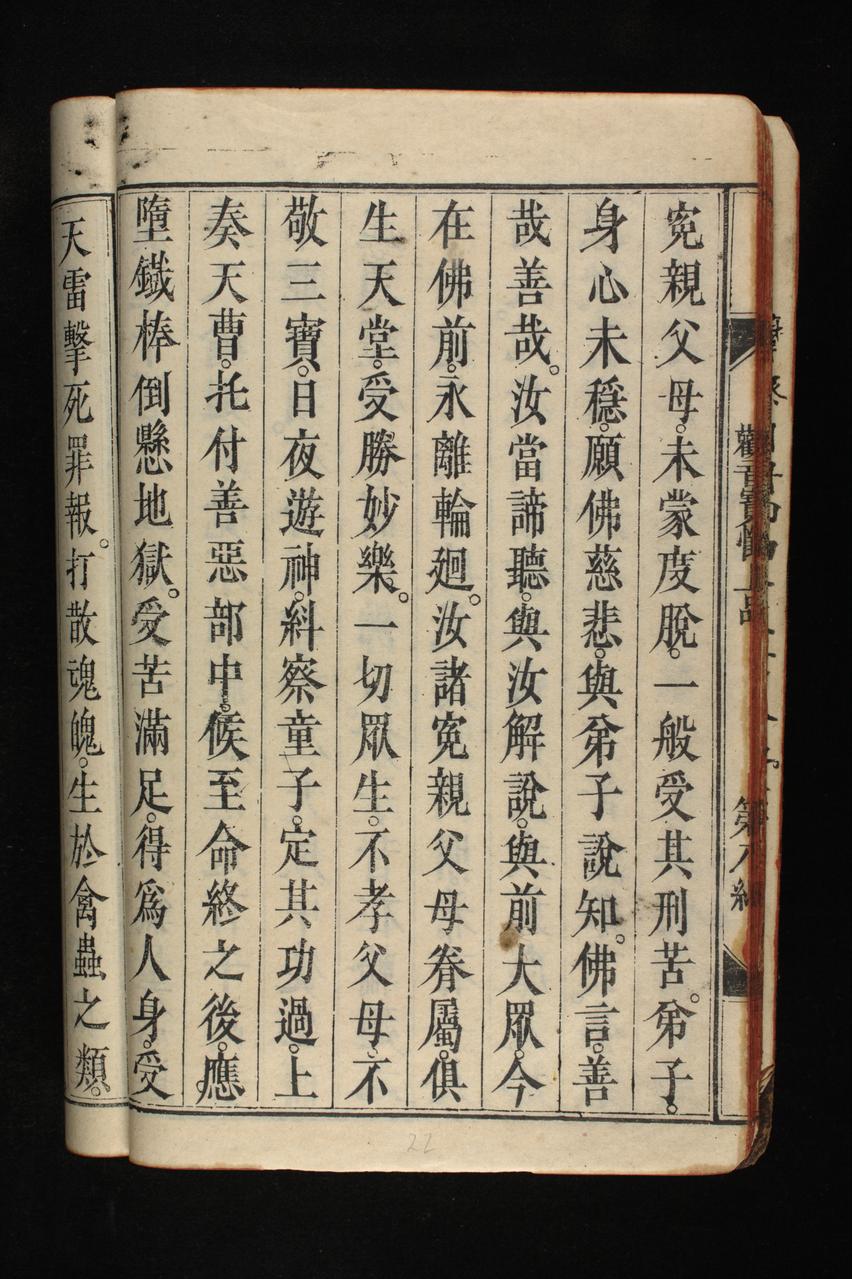 寃親父母。未蒙度脫。一般受其刑苦。弟子。
身心未穩。願佛慈悲。與弟子說知。佛言。善
哉善哉。汝當諦聽。與汝解說。與前大眾。今
在佛前。永離輪廻。汝諸寃親父母眷屬。俱
生天堂。受勝妙樂。一切眾生。不孝父母。不
敬三寶。日夜遊神。糾察童子。定其功過。上
奏天曹。托付善惡部中。候至命終之後。應
墮鐵棒倒懸地獄。受苦滿足。得爲人身。受
天雷擊死罪報。打散魂魄。生於禽蟲之類。
觀音寶懺
第
22